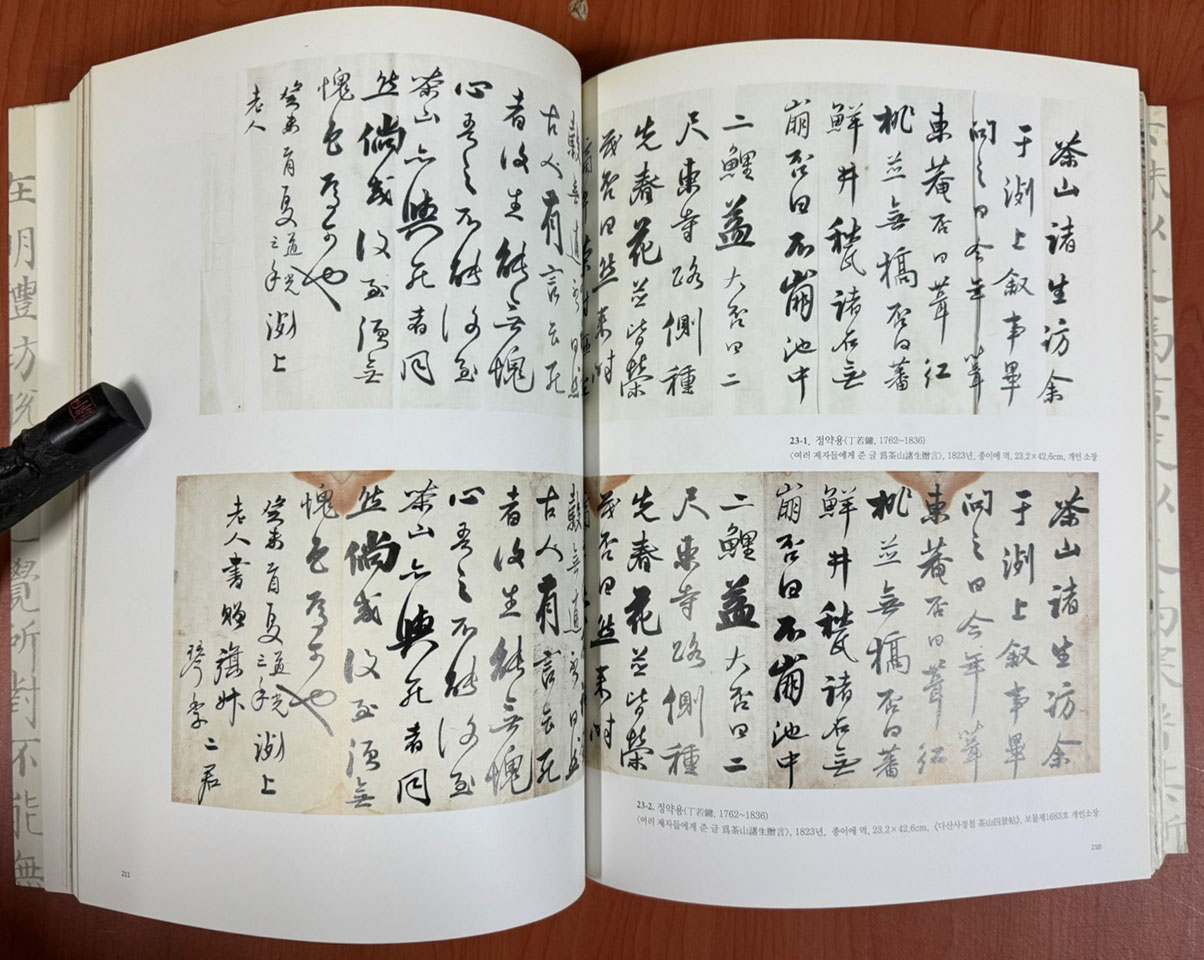 茶山諸生訪余
于洌上敍事畢
問之曰今年葺
東菴否曰葺紅
桃並無槁否曰蕃
鮮井甃諸石無
崩否曰不崩池中
二鯉益大否曰二
尺東寺路側種
先春花並皆榮
茂否曰然來時
穀無逋否曰然
古人有言云死
者復生能無愧
心吾之不能復至
茶山亦與死者同
然倘或復至須無
愧色焉可也
癸未首夏道光三年洌上
老人
23-1. 정약용(丁若鏞, 1762~1836)
〈여러 제자들에게 준 글 爲茶山諸生贈言〉, 1823년, 종이에 먹, 23.2×42.6cm, 개인 소장
茶山諸生訪余
于洌上敍事畢
問之曰今年葺
東菴否曰葺紅
桃並無槁否曰蕃
鮮井甃諸石無
崩否曰不崩池中
二鯉益大否曰二
尺東寺路側種
先春花並皆榮
茂否曰然來時
穀無逋否曰然
古人有言云死
者復生能無愧
心吾之不能復至
茶山亦與死者同
然倘或復至須無
愧色焉可也
癸未首夏道光三年洌上
老人書贈旗叔
琴季二君
23-2. 정약용(丁若鏞, 1762~1836)
〈여러 제자들에게 준 글 爲茶山諸生贈言〉, 1823년, 종이에 먹, 23.2×42.6cm, 《다산사경첩 茶山四景帖》, 보물제1683호 개인소장
210
211